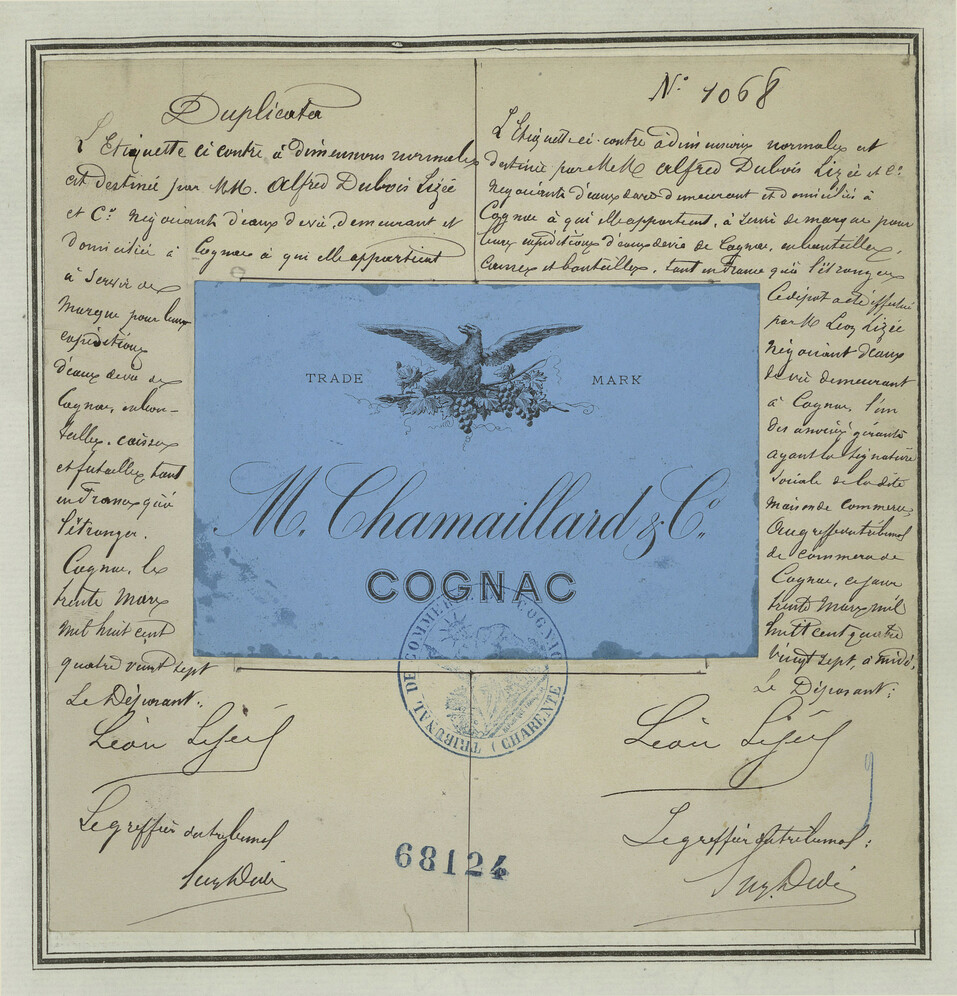 Duplicata
L'Etiquette ci contre, à dimensions normales
est destinée par MM. Alfred Dubois Lizée
et Cie Négociants d'eaux de vie, demeurant et
domiciliés à Cognac à qui elle appartient
à servir de
Marque pour leurs
expéditions
d'eaux de vie de
Cognac, en bou-
teilles, caisses
et futailles tant
en France qu'à
l'étranger.
Cognac, le
trente Mars
mil huit cent
quatre vingt sept
Le Déposant:
Léon Lizée
Le greffier du tribunal
No 1068
L'Etiquette ci-contre à dimensions normales est
destinée par MM Alfred Dubois Lizée et Cie
Négociants d'eaux de vie demeurant et domiciliés à
Cognac à qui elle appartient, à servir de marque pour
leurs expéditions d'eaux de vie de Cognac, en bouteilles,
caisses et bouteilles, tant en France qu'à l'étranger
Ce dépôt a été effectué
par M Léon Lizée
Négociant d'eaux
de vie demeurant
à Cognac, l'un
des associés gérants
ayant la signature
sociale de la dite
maison de commerce
Au greffe du tribunal
de commerce de
Cognac, ce jour
trente Mars mil
huit cent quatre
vingt sept, à midi.
Le Déposant:
Léon Lizée
Le greffier du tribunal:
TRADE MARK
M. Chamaillard & Co.
COGNAC
TRIBUNAL DE COMMERCE COGNAC (CHARENTE
68124